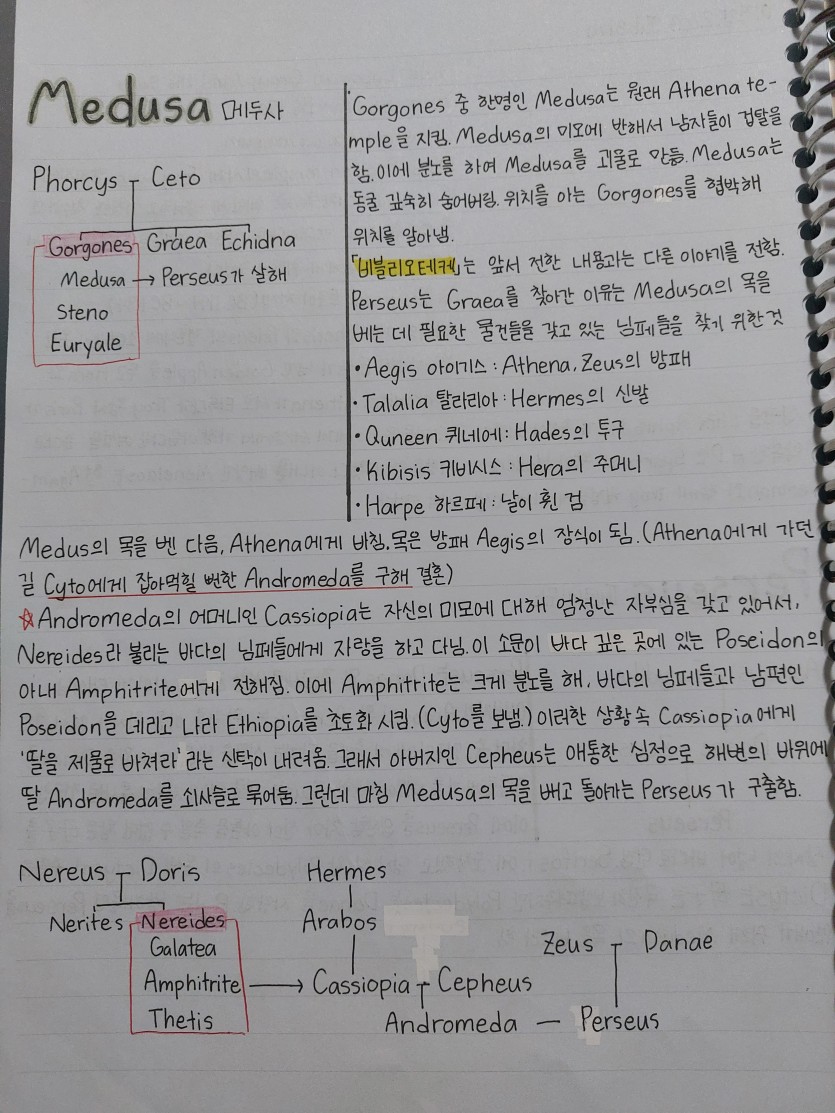 Medusa 메두사
Phorcys Ceto
Gorgones Graea Echidna
Medusa → Perseus가 살해
Steno
Euryale
Gorgones 중 한명인 Medusa는 원래 Athena te-
mple을 지킴. Medusa의 미모에 반해서 남자들이 겁탈을
함. 이에 분노를 하여 Medusa를 괴물로 만듦. Medusa는
동굴 깊숙히 숨어버림. 위치를 아는 Gorgones를 협박해
위치를 알아냄.
「비블리오테케」는 앞서 전한 내용과는 다른 이야기를 전함.
Perseus는 Graea를 찾아간 이유는 Medusa의 목을
베는 데 필요한 물건들을 갖고 있는 님페들을 찾기 위한 것
•Aegis 아이기스 : Athena, Zeus의 방패
•Talalia 탈라리아 : Hermes의 신발
•Quneen 퀴네에 : Hades의 투구
•Kibisis 키비시스 : Hera의 주머니
•Harpe 하르페 : 날이 휜 검
Medus의 목을 벤 다음, Athena에게 바침. 목은 방패 Aegis의 장식이 됨. (Athena에게 가던
길 Cyto에게 잡아먹힐 뻔한 Andromeda를 구해 결혼)
☆Andromeda의 어머니인 Cassiopia는 자신의 미모에 대해 엄청난 자부심을 갖고 있어서,
Nereides라 불리는 바다의 님페들에게 자랑을 하고 다님. 이 소문이 바다 깊은 곳에 있는 Poseidon의
아내 Amphitrite에게 전해짐. 이에 Amphitrite는 크게 분노를 해, 바다의 님페들과 남편인
Poseidon을 데리고 나라 Ethiopia를 초토화 시킴. (Cyto를 보냄.) 이러한 상황 속 Cassiopia에게
'딸을 제물로 바쳐라'라는 신탁이 내려옴. 그래서 아버지인 Cepheus는 애통한 심정으로 해변의 바위에
딸 Andromeda를 쇠사슬로 묶어둠. 그런데 마침 Medusa의 목을 베고 돌아가는 Perseus가 구출함.
Nereus Doris
Nerites Nereides
Galatea
Amphitrite →
Thetis
Hermes
Arabos
Cassiopia Cepheus
Zeus Danae
Andromeda — Perseus